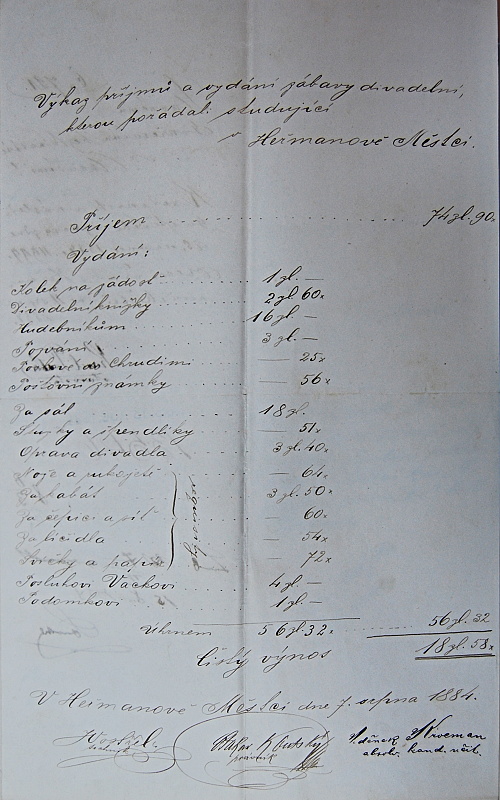 Výkaz příjmů a vydání zábavy divadelní,
kterou pořádali studující
v Heřmanově Městci.
Příjem 74 zl. 90x
Vydání:
Kolek na žádost 1 zl. —
Divadelní knížky 2 zl 60x
Hudebníkům 16 zl —
Pozvání 3 zl. —
Poslovi do Chrudimi — 25x
Poštovní známky — 56x
Za sál 18 zl.
Stužky a špendlíky — 51x
Oprava divadla 3 zl. 40x
Nože a — 64x
Za kabát 3 zl. 50x
Za čepici a — 60x
Za líčidla — 54x
Svíčky a — 72x
Posluhovi Vackovi 4 zl. —
Podomkovi 1 zl. —
Úhrnem 56 zl 32x 56 zl. 32
Čistý výnos 18 zl. 58x
V Heřmanově Městci dne 7. srpna 1884.
Zdeněk
právník absolv. kand. učit.